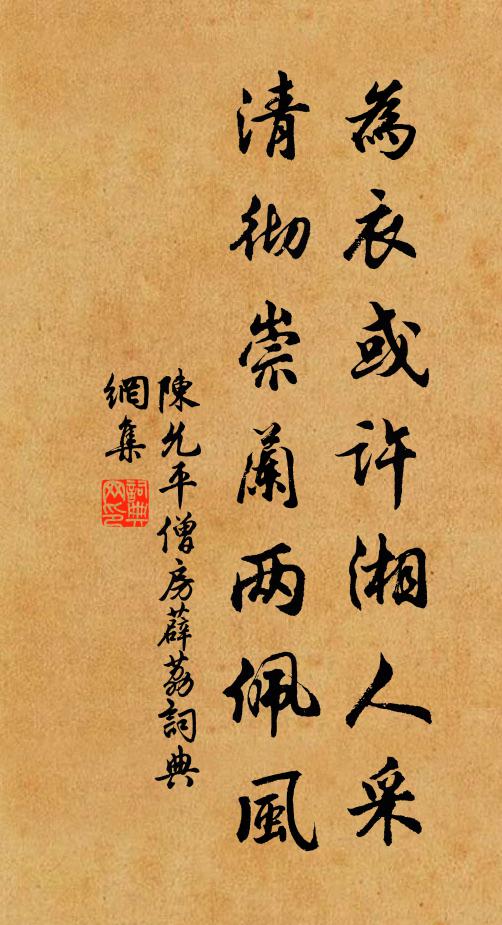 為衣或许湘人采
清彻崇蘭两佩風
陳允平僧房薜荔詞典
網集
詞典网印